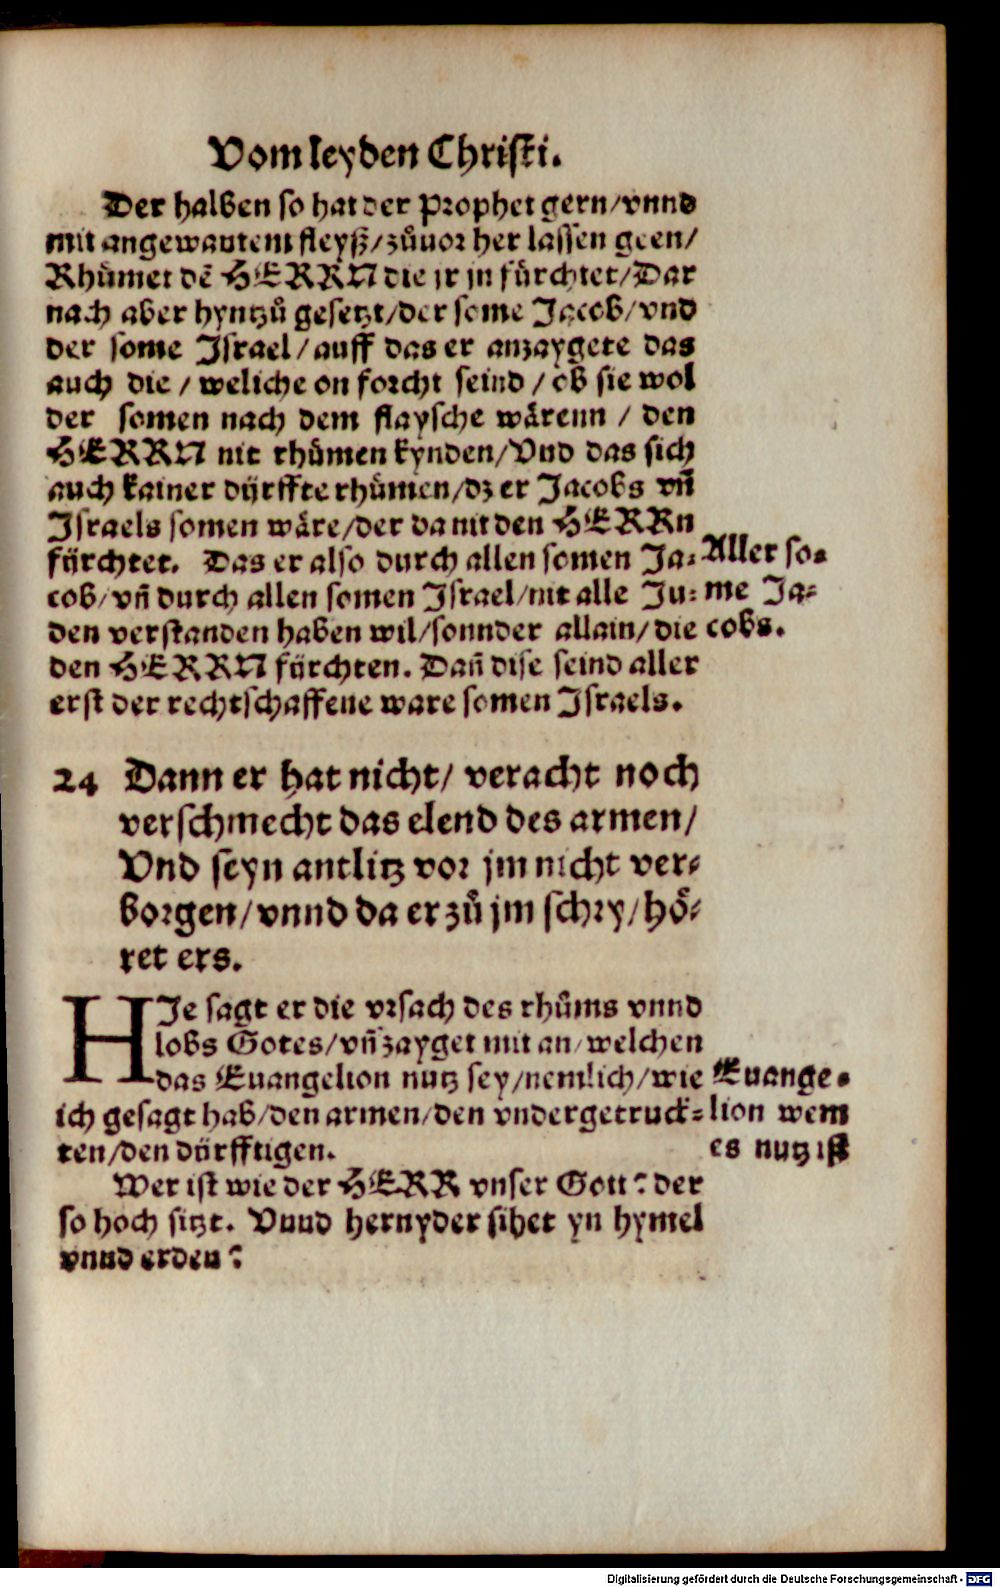 Vom leyden Christi.
Der halben so hat der Prophet gern/vnnd
mit angewantem fleyß/zůuor her lassen geen/
Rhůmet dē HERRN die jr jn fürchtet/Dar
nach aber hyntzů gesetzt/der some Jacob/vnd
der some Israel/auff das er anzaygete das
auch die/weliche on forcht seind/ob sie wol
der somen nach dem flaysche wärenn/den
HERRN nit rhůmen kynden/Vnd das sich
auch kainer dÿrffte rhůmen/dz er Jacobs vñ
Israels somen wäre/der da nit den HERRn
fÿrchtet. Das er also durch allen somen Ja-
cob/vñ durch allen somen Israel/nit alle Ju-
den verstanden haben wil/sonnder allain/die
den HERRN fürchten. Dañ dise seind aller
erst der rechtschaffene ware somen Israels.
Aller so-
me Ja-
cobs.
24 Dann er hat nicht/ veracht noch
verschmecht das elend des armen/
Vnd seyn antlitz vor jm nicht ver-
borgen/vnnd da er zů jm schry/hö-
ret ers.
HIe sagt er die vrsach des rhůms vnnd
lobs Gotes/vñ zayget mit an/welchen
das Euangelion nutz sey/nemlich/wie
ich gesagt hab/den armen/den vndergetruck-
ten/den dürfftigen.
Euange-
lion wem
es nutz ist
Wer ist wie der HERR vnser Gott? der
so hoch sitzt. Vnnd hernyder sihet yn hymel
vnnd erden?
Digitalisierung gefördert durch die Deutsche Forschungsgemeinschaft - DFG